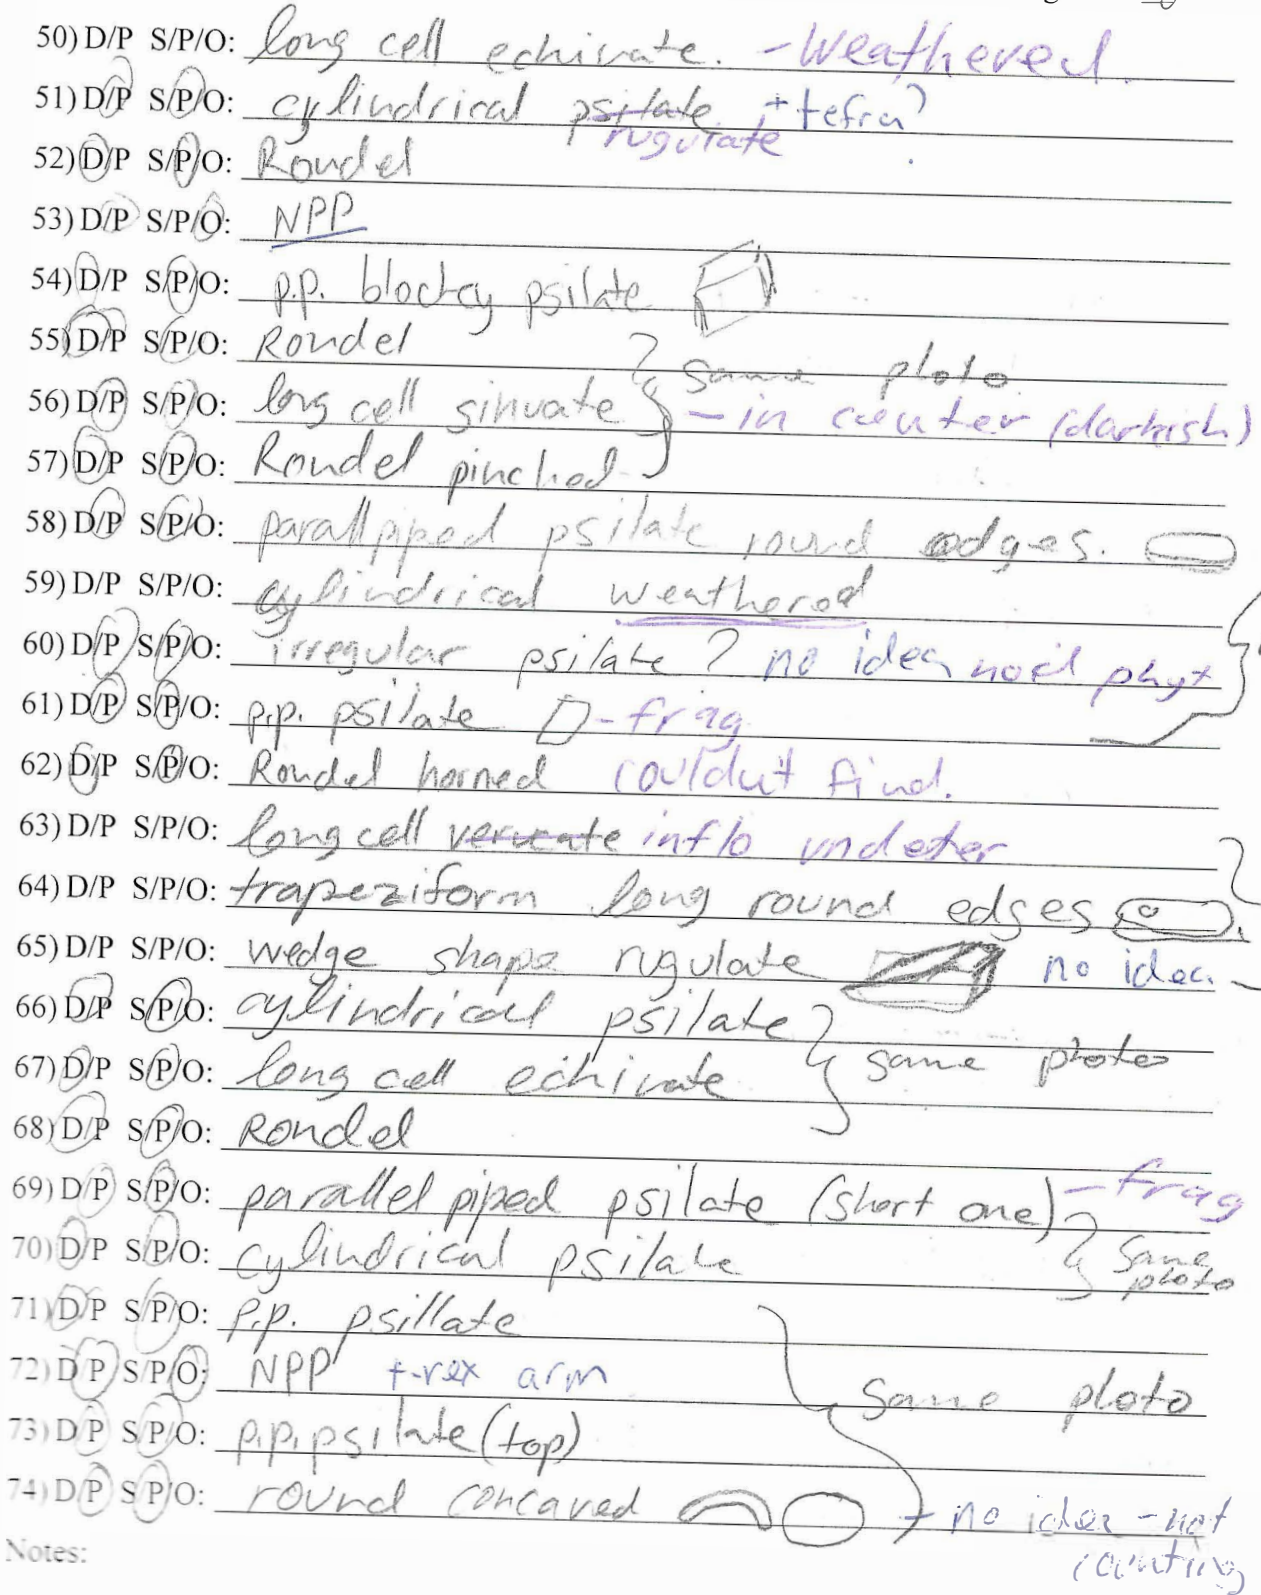 50) D/P S/P/O: long cell echinate. - Weathered.
51) D/P S/P/O: cylindrical psilate + tefra?
rugulate
52) D/P S/P/O: Rondel
53) D/P S/P/O: NPP
54) D/P S/P/O: p.p. blocky psilate
55) D/P S/P/O: Rondel
same photo
56) D/P S/P/O: long cell sinuate - in center (darkish)
57) D/P S/P/O: Rondel pinched
58) D/P S/P/O: parallpiped psilate round edges.
59) D/P S/P/O: cylindrical weathered
60) D/P S/P/O: irregular psilate? no idea phyt
61) D/P S/P/O: p.p. psilate - frag
62) D/P S/P/O: Rondel horned couldnt find.
63) D/P S/P/O: long cell verucate inflo undeter
64) D/P S/P/O: trapeziform long round edges
65) D/P S/P/O: wedge shape rugulate no idea
66) D/P S/P/O: cylindrical psilate
67) D/P S/P/O: long cell echinate same photo
68) D/P S/P/O: Rondel
69) D/P S/P/O: parallelpiped psilate (short one) - frag
70) D/P S/P/O: cylindrical psilate same
photo
71) D/P S/P/O: p.p. psillate
72) D/P S/P/O: NPP t-rex arm same photo
73) D/P S/P/O: p.p. psilate (top)
74) D/P S/P/O: round concaved no idea - not
counting
Notes: